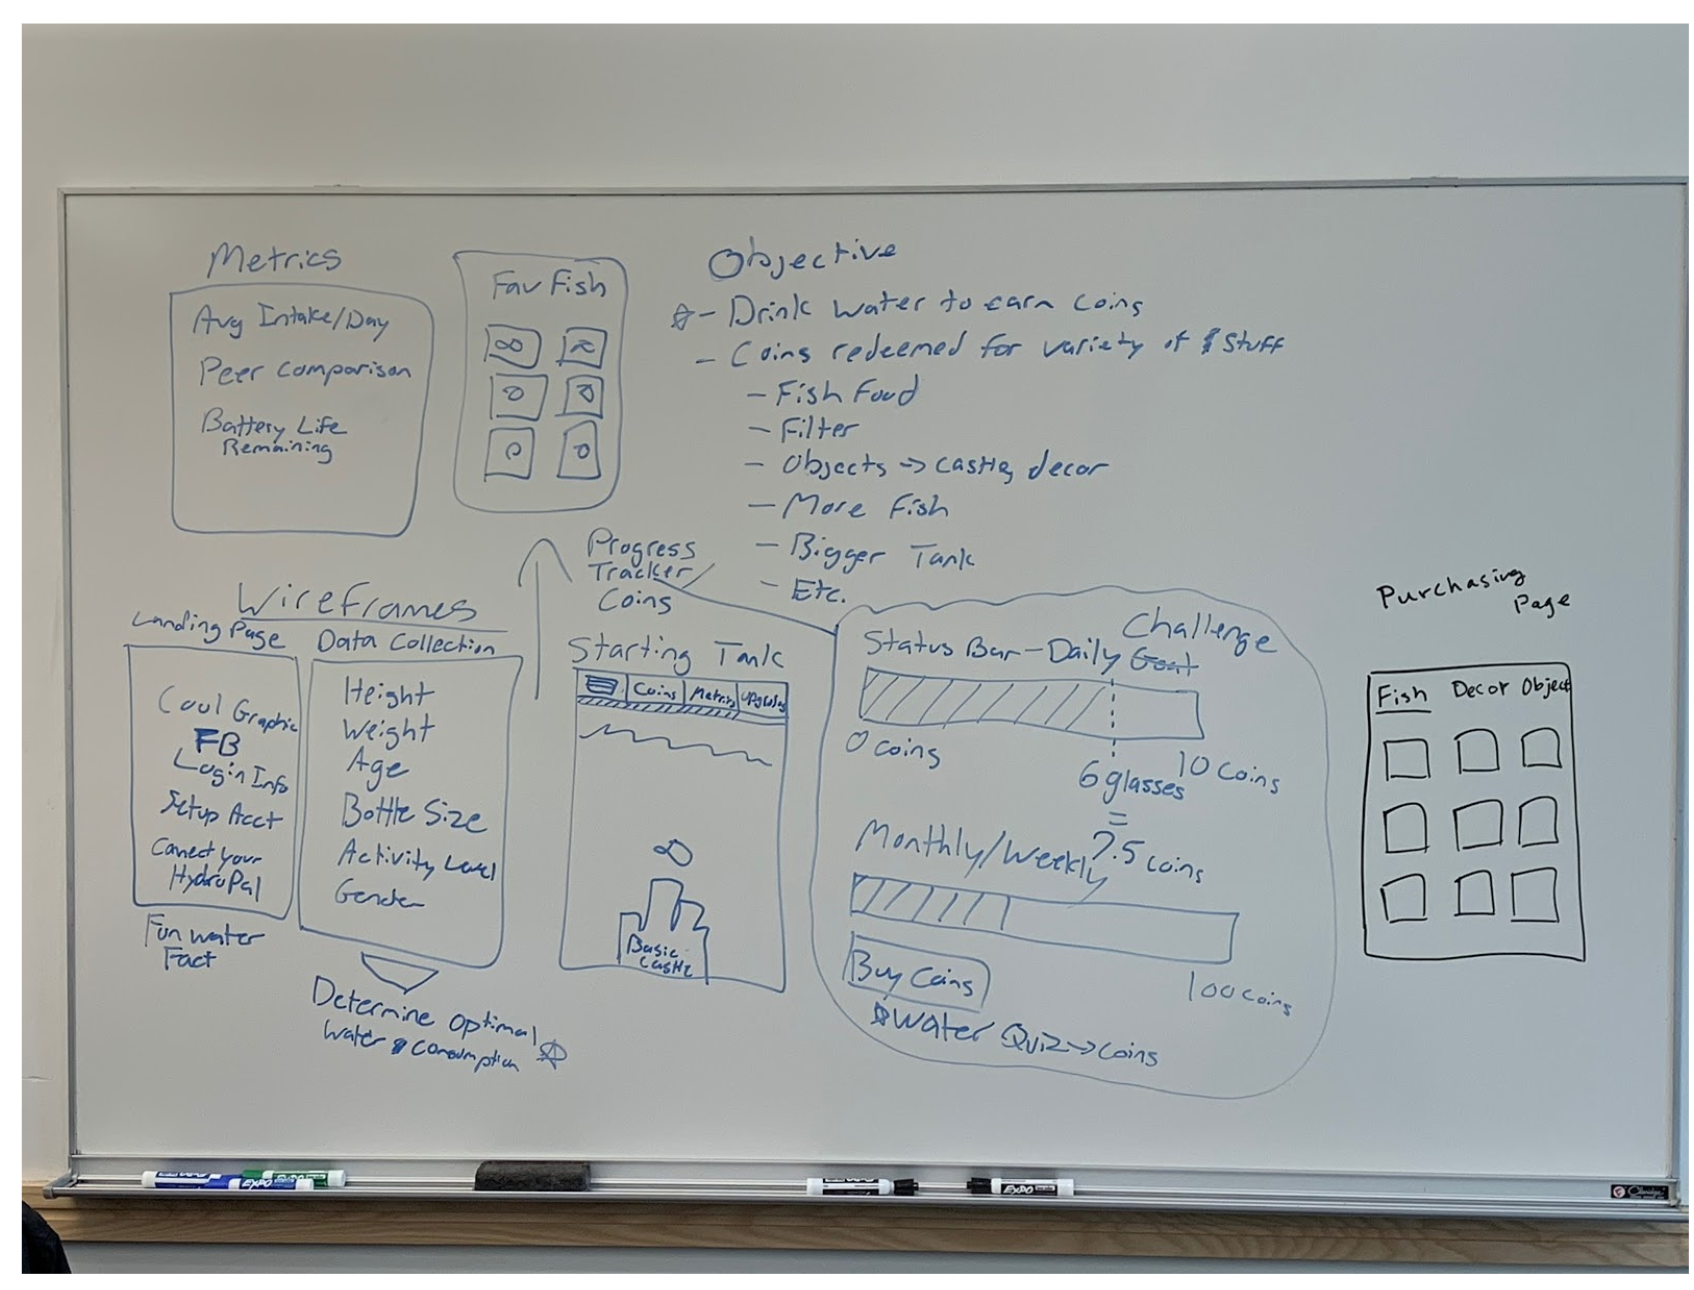 Metrics
Avg Intake/Day
Peer Comparison
Battery Life
Remaining
Fav Fish
Objective
- Drink water to earn coins
- Coins redeemed for variety of $ Stuff
- Fish Food
- Filter
- Objects → castle, decor
- More Fish
- Bigger Tank
- Etc.
Progress
Tracker
Coins
Wireframes
Landing Page
Cool Graphic
FB
Login Info
Setup Acct
Connect your
HydroPal
Fun water
Fact
Data Collection
Height
Weight
Age
Bottle Size
Activity Level
Gender
Determine optimal
water consumption
Starting Tank
Coins Metrics Upgrades
Basic
Castle
Challenge
Status Bar - Daily Goal
0 coins
10 coins
6 glasses
=
7.5 coins
Monthly/Weekly
100 coins
Buy Coins
Water Quiz → coins
Purchasing
Page
Fish Decor Object
EXPO
EXPO